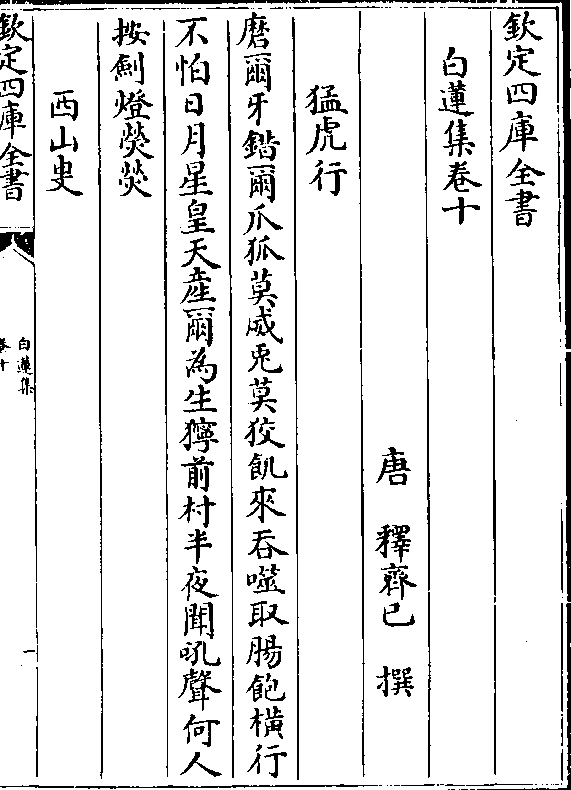 欽定四庫全書
白蓮集卷十
唐 釋齊己 撰
猛虎行
磨爾牙錯爾爪狐莫威兎莫狡飢來吞噬取腸飽橫行
不怕日月星皇天產爾為生獰前村半夜聞吼聲何人
按劍燈熒熒
西山叟
欽定四庫全書
白蓮集
卷十
一